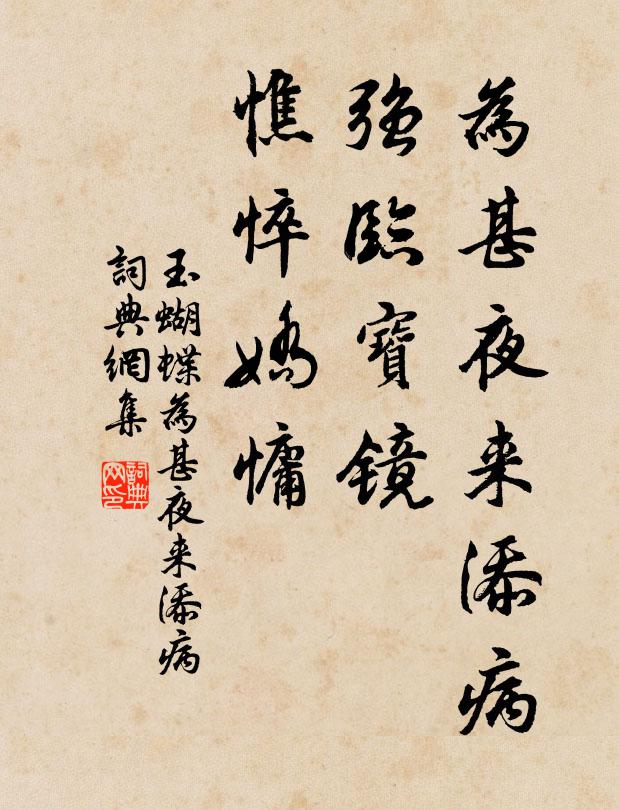 為甚夜来添病
強臨寶鏡
憔悴嬌慵
玉蝴蝶為甚夜来添病
詞典網集
詞典网印